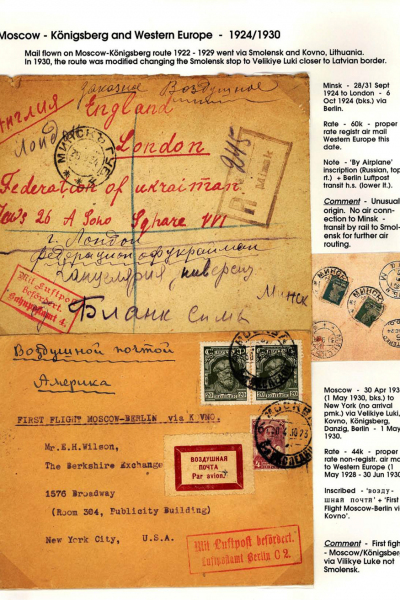 Moscow - Königsberg and Western Europe - 1924/1930
Mail flown on Moscow-Königsberg route 1922 - 1929 went via Smolensk and Kovno, Lithuania.
In 1930, the route was modified changing the Smolensk stop to Velikiye Luki closer to Latvian border.
Заказное Воздушное
Англия
England
Лонд
МИНСК
London
R
245
Federation of ukrainian
Jews 26 A Soho Sqhare W1
г. Лондон
Федерация
Минск
Mit Luftpost
befördert.
Bahnpostamt 4.
Бланк
Minsk - 28/31 Sept
1924 to London - 6
Oct 1924 (bks.) via
Berlin.
Rate - 60k - proper
rate registr air mail
Western Europe this
date.
Note - 'By Airplane'
inscription (Russian, top
rt.) + Berlin Luftpost
transit h.s. (lower lt.).
Comment - Unusual
origin. No air con-
nection to Minsk -
transit by rail to Smol-
ensk for further air
routing.
МИНСК
Воздушной почтой
Америка
20
20
МОСКВА
FIRST FLIGHT MOSCOW-BERLIN via KOVNO.
Mr.E.H.Wilson,
The Berkshire Exchange
1576 Broadway
(Room 304, Publicity Building)
New York City, U.S.A.
ВОЗДУШНАЯ
ПОЧТА
Par avion.
Mit Luftpost befördert.
Luftpostamt Berlin C 2.
Moscow - 30 Apr 1930
(1 May 1930, bks.) to
New York (no arrival
pmk.) via Velikiye Luki,
Kovno, Königsberg,
Danzig, Berlin - 1 May
1930.
Rate - 44k - proper
rate non-registr. air mail
to Western Europe (1
May 1928 - 30 Jun 1930
Inscribed - 'возду-
шная почти' + 'First
Flight Moscow-Berlin via
Kovno'.
Comment - First flight
- Moscow/Königsberg
via Vilikye Luke not
Smolensk.